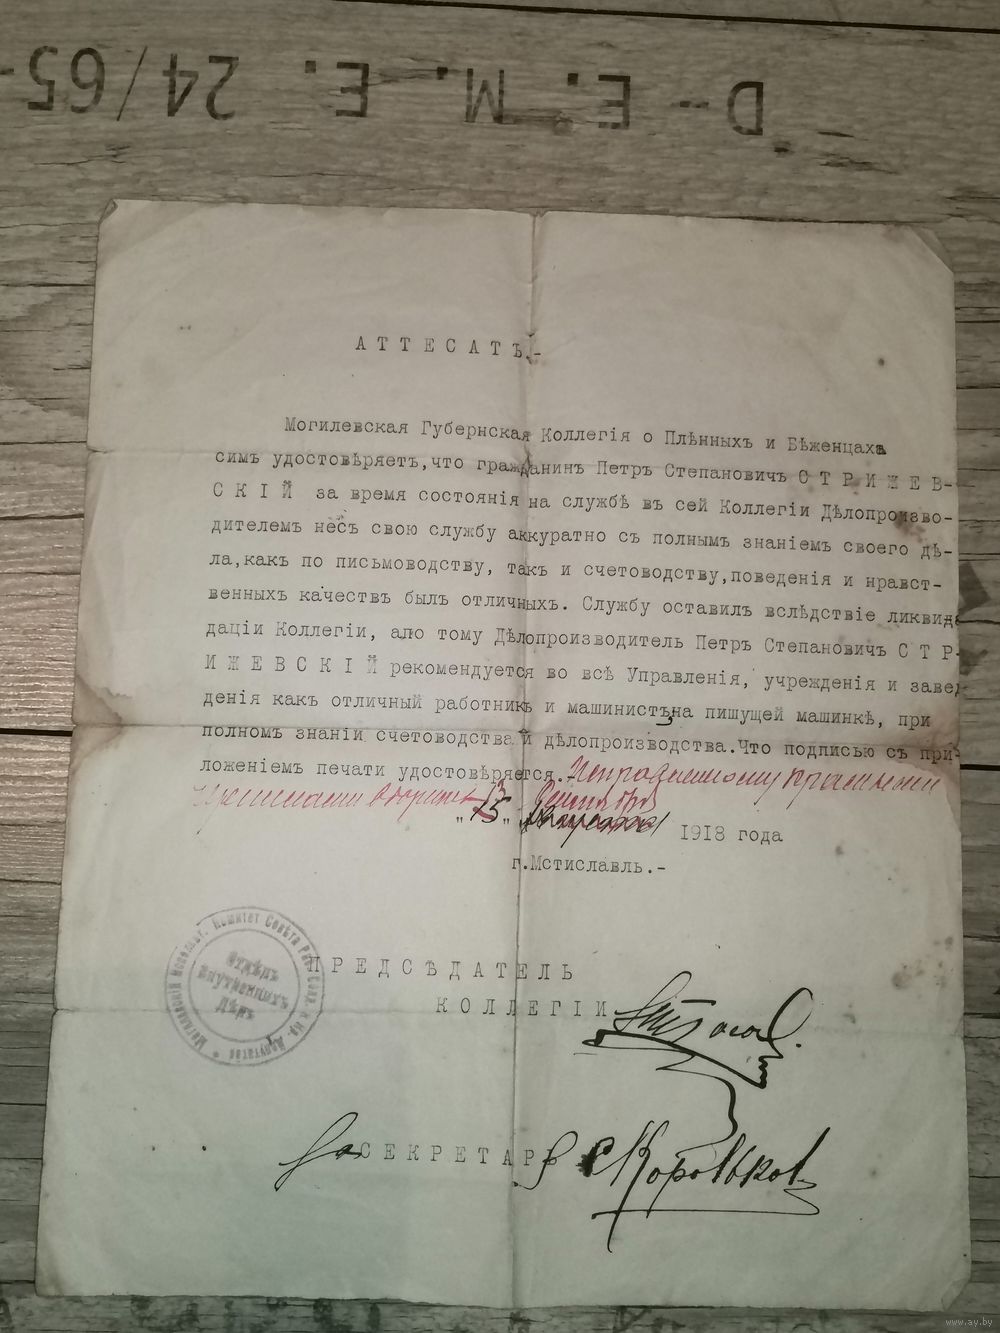 D-E.M.E. 24/65-
АТТЕСАТЪ.-
Могилевская Губернская Коллегія о Плѣнныхъ и Бѣженцахъ
симъ удостовѣряетъ,что гражданинъ Петръ Степановичъ С Т Р И Ж Е В-
С К І Й за время состоянія на службѣ въ сей Коллегіи Дѣлопроизво-
дителемъ несъ свою службу аккуратно съ полнымъ знаніемъ своего дѣ-
ла,какъ по письмоводству, такъ и счетоводству,поведенія и нравст-
венныхъ качествъ былъ отличныхъ. Службу оставилъ вслѣдствіе ликвид
даціи Коллегіи, апо тому Дѣлопроизводитель Петръ Степановичъ С Т Р-
И Ж Е В С К І Й рекомендуется во всѣ Управленія, учрежденія и завед
денія какъ отличный работникъ и машинистъна пишущей машинкѣ, при
полномъ знаніи счетоводства и дѣлопроизводства.Что подписью съ при-
ложеніемъ печати удостовѣряется.-
"15" 1918 года
г.Мстиславль.-
Комитет Совѣта
Отдѣлъ
Внутренныхъ
Дѣлъ
ПРЕДСѢДАТЕЛЬ
КОЛЛЕГІИ
За СЕКРЕТАРЬ Коровьков
www.ay.by